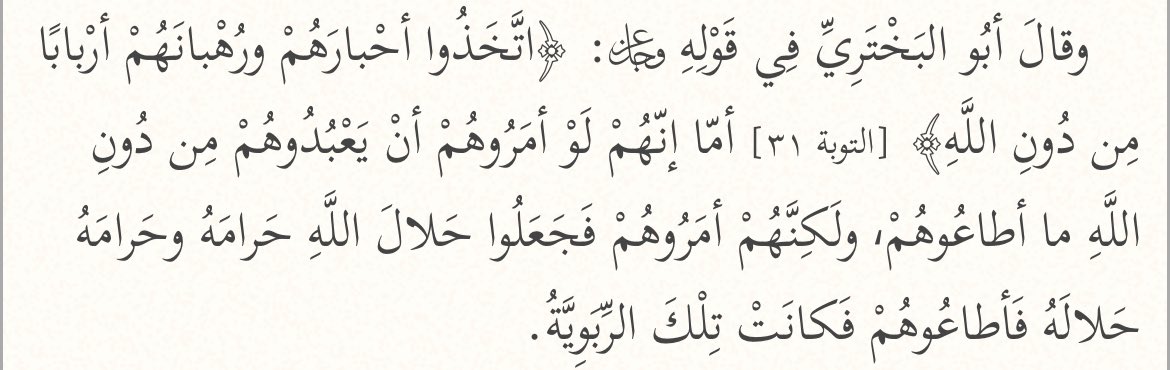 وقالَ أبُو البَخْتَرِيِّ فِي قَوْلِهِ : ﴿اتَّخَذُوا أحْبارَهُمْ ورُهْبانَهُمْ أرْبابًا
مِن دُونِ اللَّهِ﴾ [التوبة ٣١] أمّا إنّهُمْ لَوْ أمَرُوهُمْ أنْ يَعْبُدُوهُمْ مِن دُونِ
اللَّهِ ما أطاعُوهُمْ، ولَكِنَّهُمْ أمَرُوهُمْ فَجَعَلُوا حَلالَ اللَّهِ حَرامَهُ وحَرامَهُ
حَلالَهُ فَأطاعُوهُمْ فَكانَتْ تِلْكَ الرِّبَوِيَّةُ.